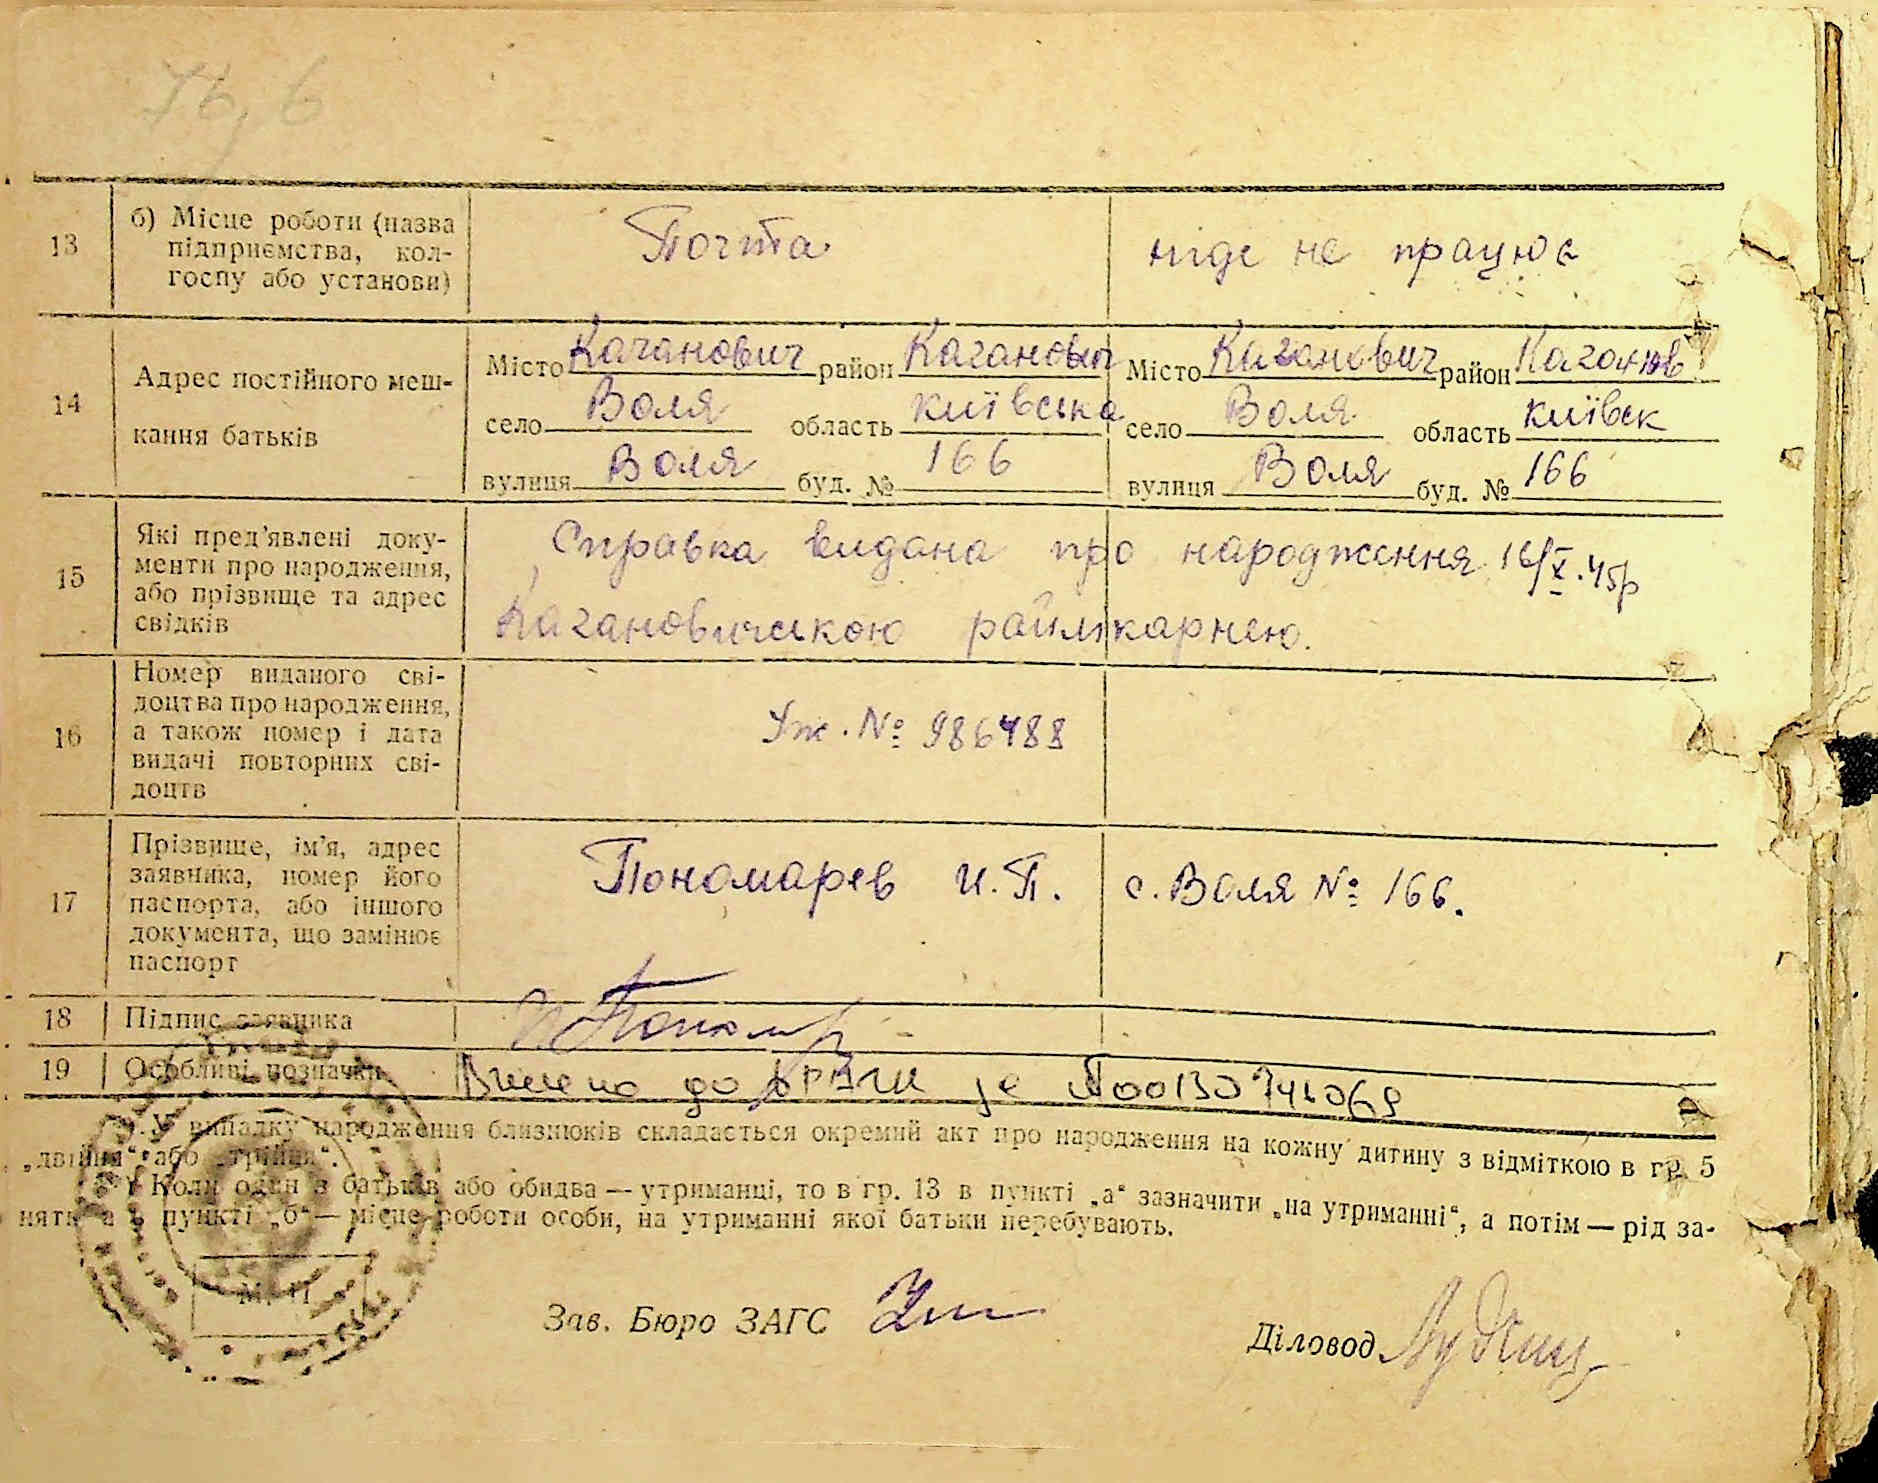 76, 6
13
б) Місце роботи (назва
підприємства, кол-
госпу або установи)
Почта
ніде не працює
14
Адрес постійного меш-
кання батьків
Місто Каганович район Каганович
село Воля область київська
вулиця Воля буд. № 166
Місто Каганович район Каганов
село Воля область київск
вулиця Воля буд. № 166
15
Які пред'явлені доку-
менти про народження,
або прізвище та адрес
свідків
Справка видана про народження 16/X.45р
Кагановичською райлікарнею.
16
Номер виданого сві-
доцтва про народження,
а також номер і дата
видачі повторних сві-
доцтв
Уж. № 986488
17
Прізвище, ім'я, адрес
заявника, номер його
паспорта, або іншого
документа, що замінює
паспорт
Пономарев И. П. с. Воля № 166.
18
Підпис заявника
19
Особливі позначки
Внесено до ДРАЦС за №00130746069
У випадку народження близнюків складається окремий акт про народження на кожну дитину з відміткою в гр. 5
„двійня“ або „трійня“.
Коли один з батьків або обидва — утриманці, то в гр. 13 в пункті „а“ зазначити „на утриманні“, а потім — рід за-
няття, а в пункті „б“ — місце роботи особи, на утриманні якої батьки перебувають.
М. П.
Зав. Бюро ЗАГС
Діловод